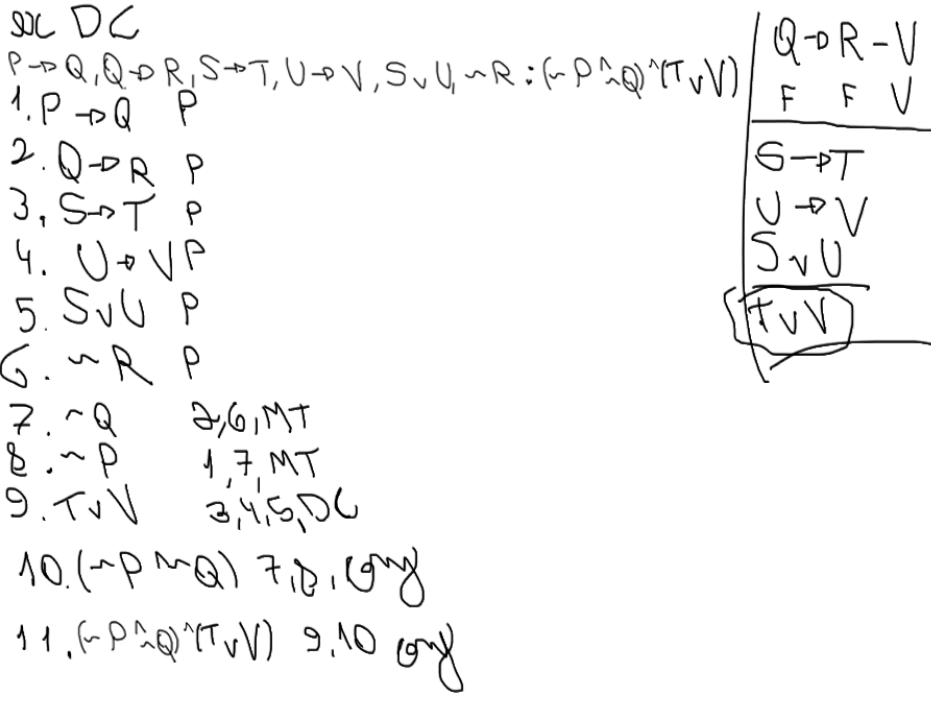 DC
P→Q, Q→R, S→T, U→V, SvU, ~R : (~P^~Q)^(TvV)
1. P→Q P
2. Q→R P
3. S→T P
4. U→V P
5. SvU P
6. ~R P
7. ~Q 2,6, MT
8. ~P 1,7, MT
9. TvV 3,4,5, DC
10. (~P^~Q) 7,8, conj
11. (~P^~Q)^(TvV) 9,10 conj
Q→R - V
F F V
S→T
U→V
SvU
TvV